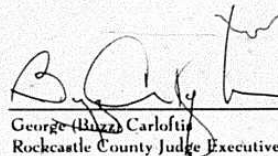 George (Buzz) Carloftis
Rockcastle County Judge Executive